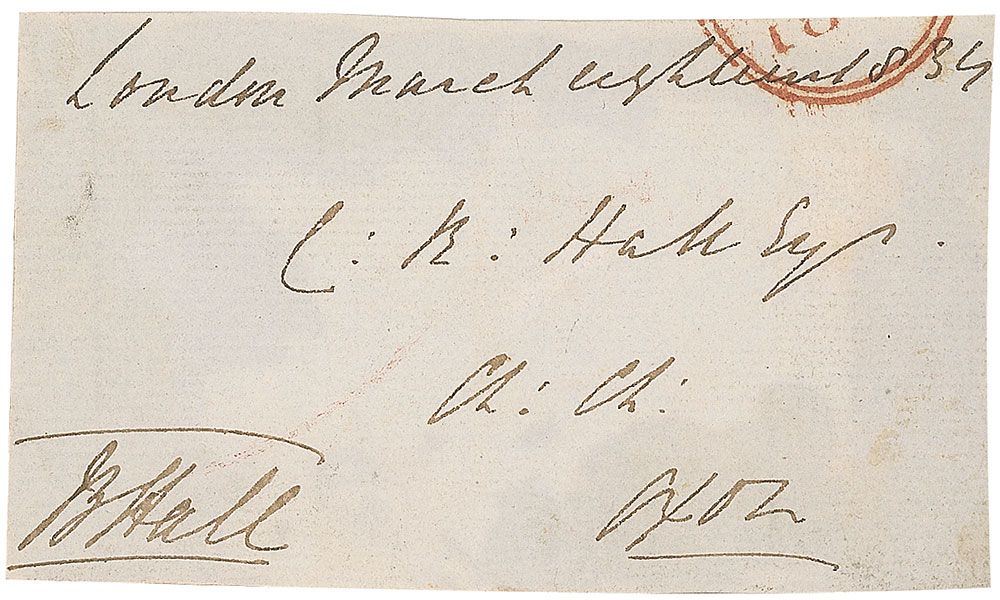 London March eighteen 1834
C: R: Hall Esqr.
Ch: Ch:
BHall
Oxon